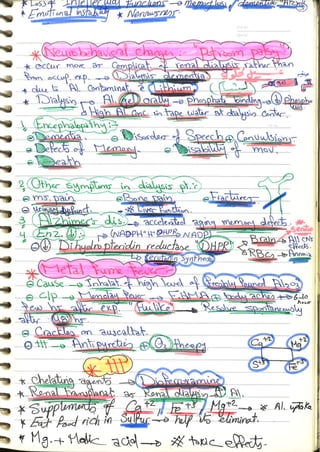 * Loss of Intellectual Functions → memory loss / dementia
* Emotional instability * Nervousness
* Neurobehavioral changes :-
* occur more as Complicat. of renal dialysis rather than
from occup. exp. → Dialysis dementia
* due to Al. Contaminat. Lithium
* Dialysis → Al. gel orally → phosphate binding →
↑ High Al. Conc in Tape water at dialysis center.
① Encephalopathy :-
Dementia Disorder of Speech Convulsion
Defects of Memory Disability of mov.
Death
② Other Symptoms in dialysis pt. :-
ms. pain Bone pain Fractures
urinary dysfunct. Liver function
③ Alzheimer dis. → accelerated aging memory defects
④ Enz. ↓ : NADPH+H DHPR NADP
↓ Dihydropteridin reductase (DHPR) Brain → All CNS effects
RBCs → Anemia
* Metal Fume Fever
Cause → Inhalat. of high level of Al2O3
C/P → Monday Fever → FAHM body aches 6-10
few hrs after exp. flu like → Resolve spontaneously
after 48 hrs
Crackles on auscultat.
ttt → Antipyretics + O2 therapy
* ttt
* Chelating agents → Deferoxamine
* Renal Transplanat or Renal dialysis Al.
* Supplements of Ca+2 / Fe+3 / Mg+2 → Al. uptake
* Eat Food rich in Sulfur → help its eliminat.
* Mg. + Malic acid → toxic effects.
Ca+2 Mg+2
S+3 Fe+3